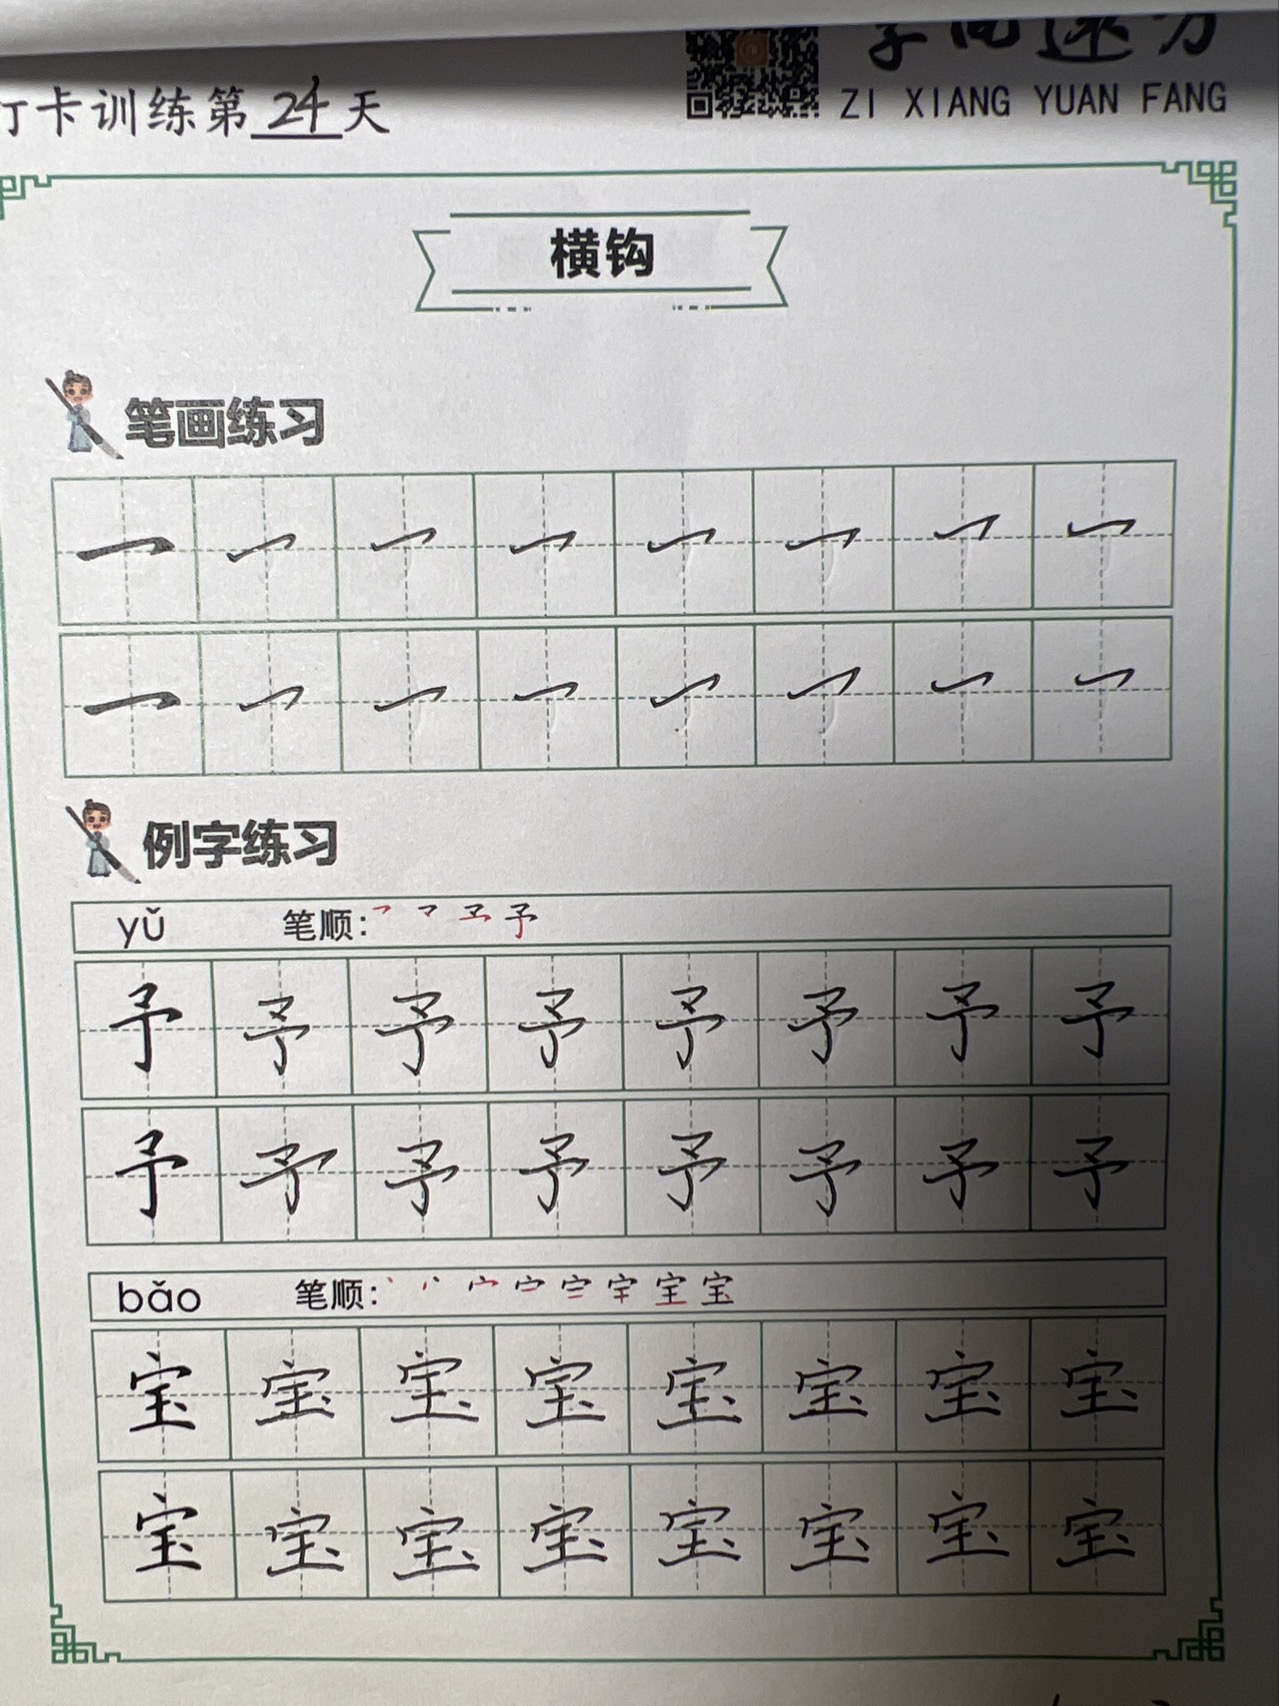 字向远方
ZI XIANG YUAN FANG
打卡训练第24天
横钩
笔画练习
例字练习
yǔ 笔顺:
予 予 予 予 予 予 予 予
予 予 予 予 予 予 予 予
bǎo 笔顺:
宝 宝 宝 宝 宝 宝 宝 宝
宝 宝 宝 宝 宝 宝 宝 宝